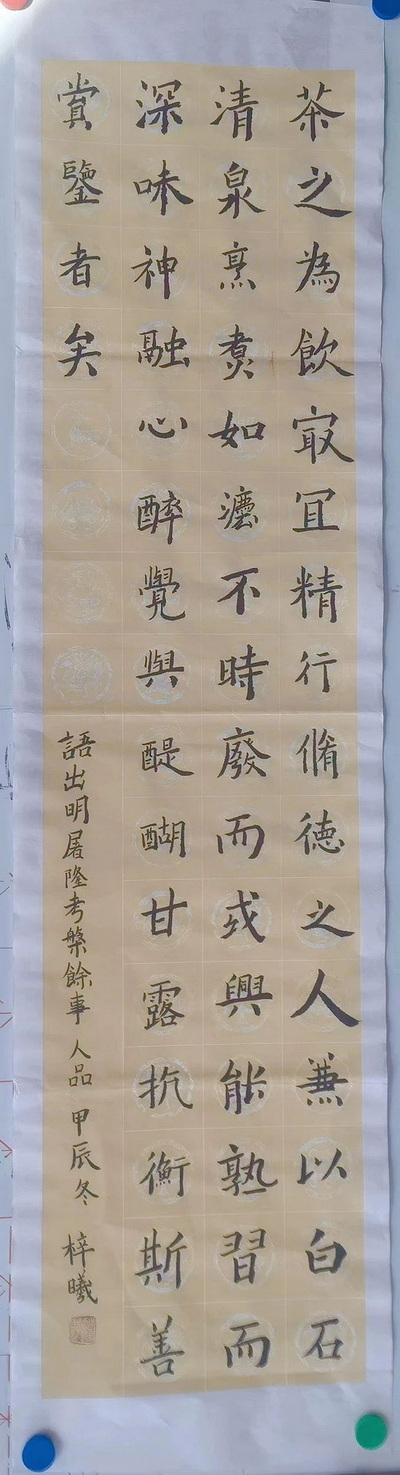 茶之為飲宜精行脩德之人兼以白石
清泉烹煑如灋不時廢而或興能熟習而
深味神融心醉覺與醍醐甘露抗衡斯善
賞鑒者矣
語出明屠隆考槃餘事 人品 甲辰冬 梓曦